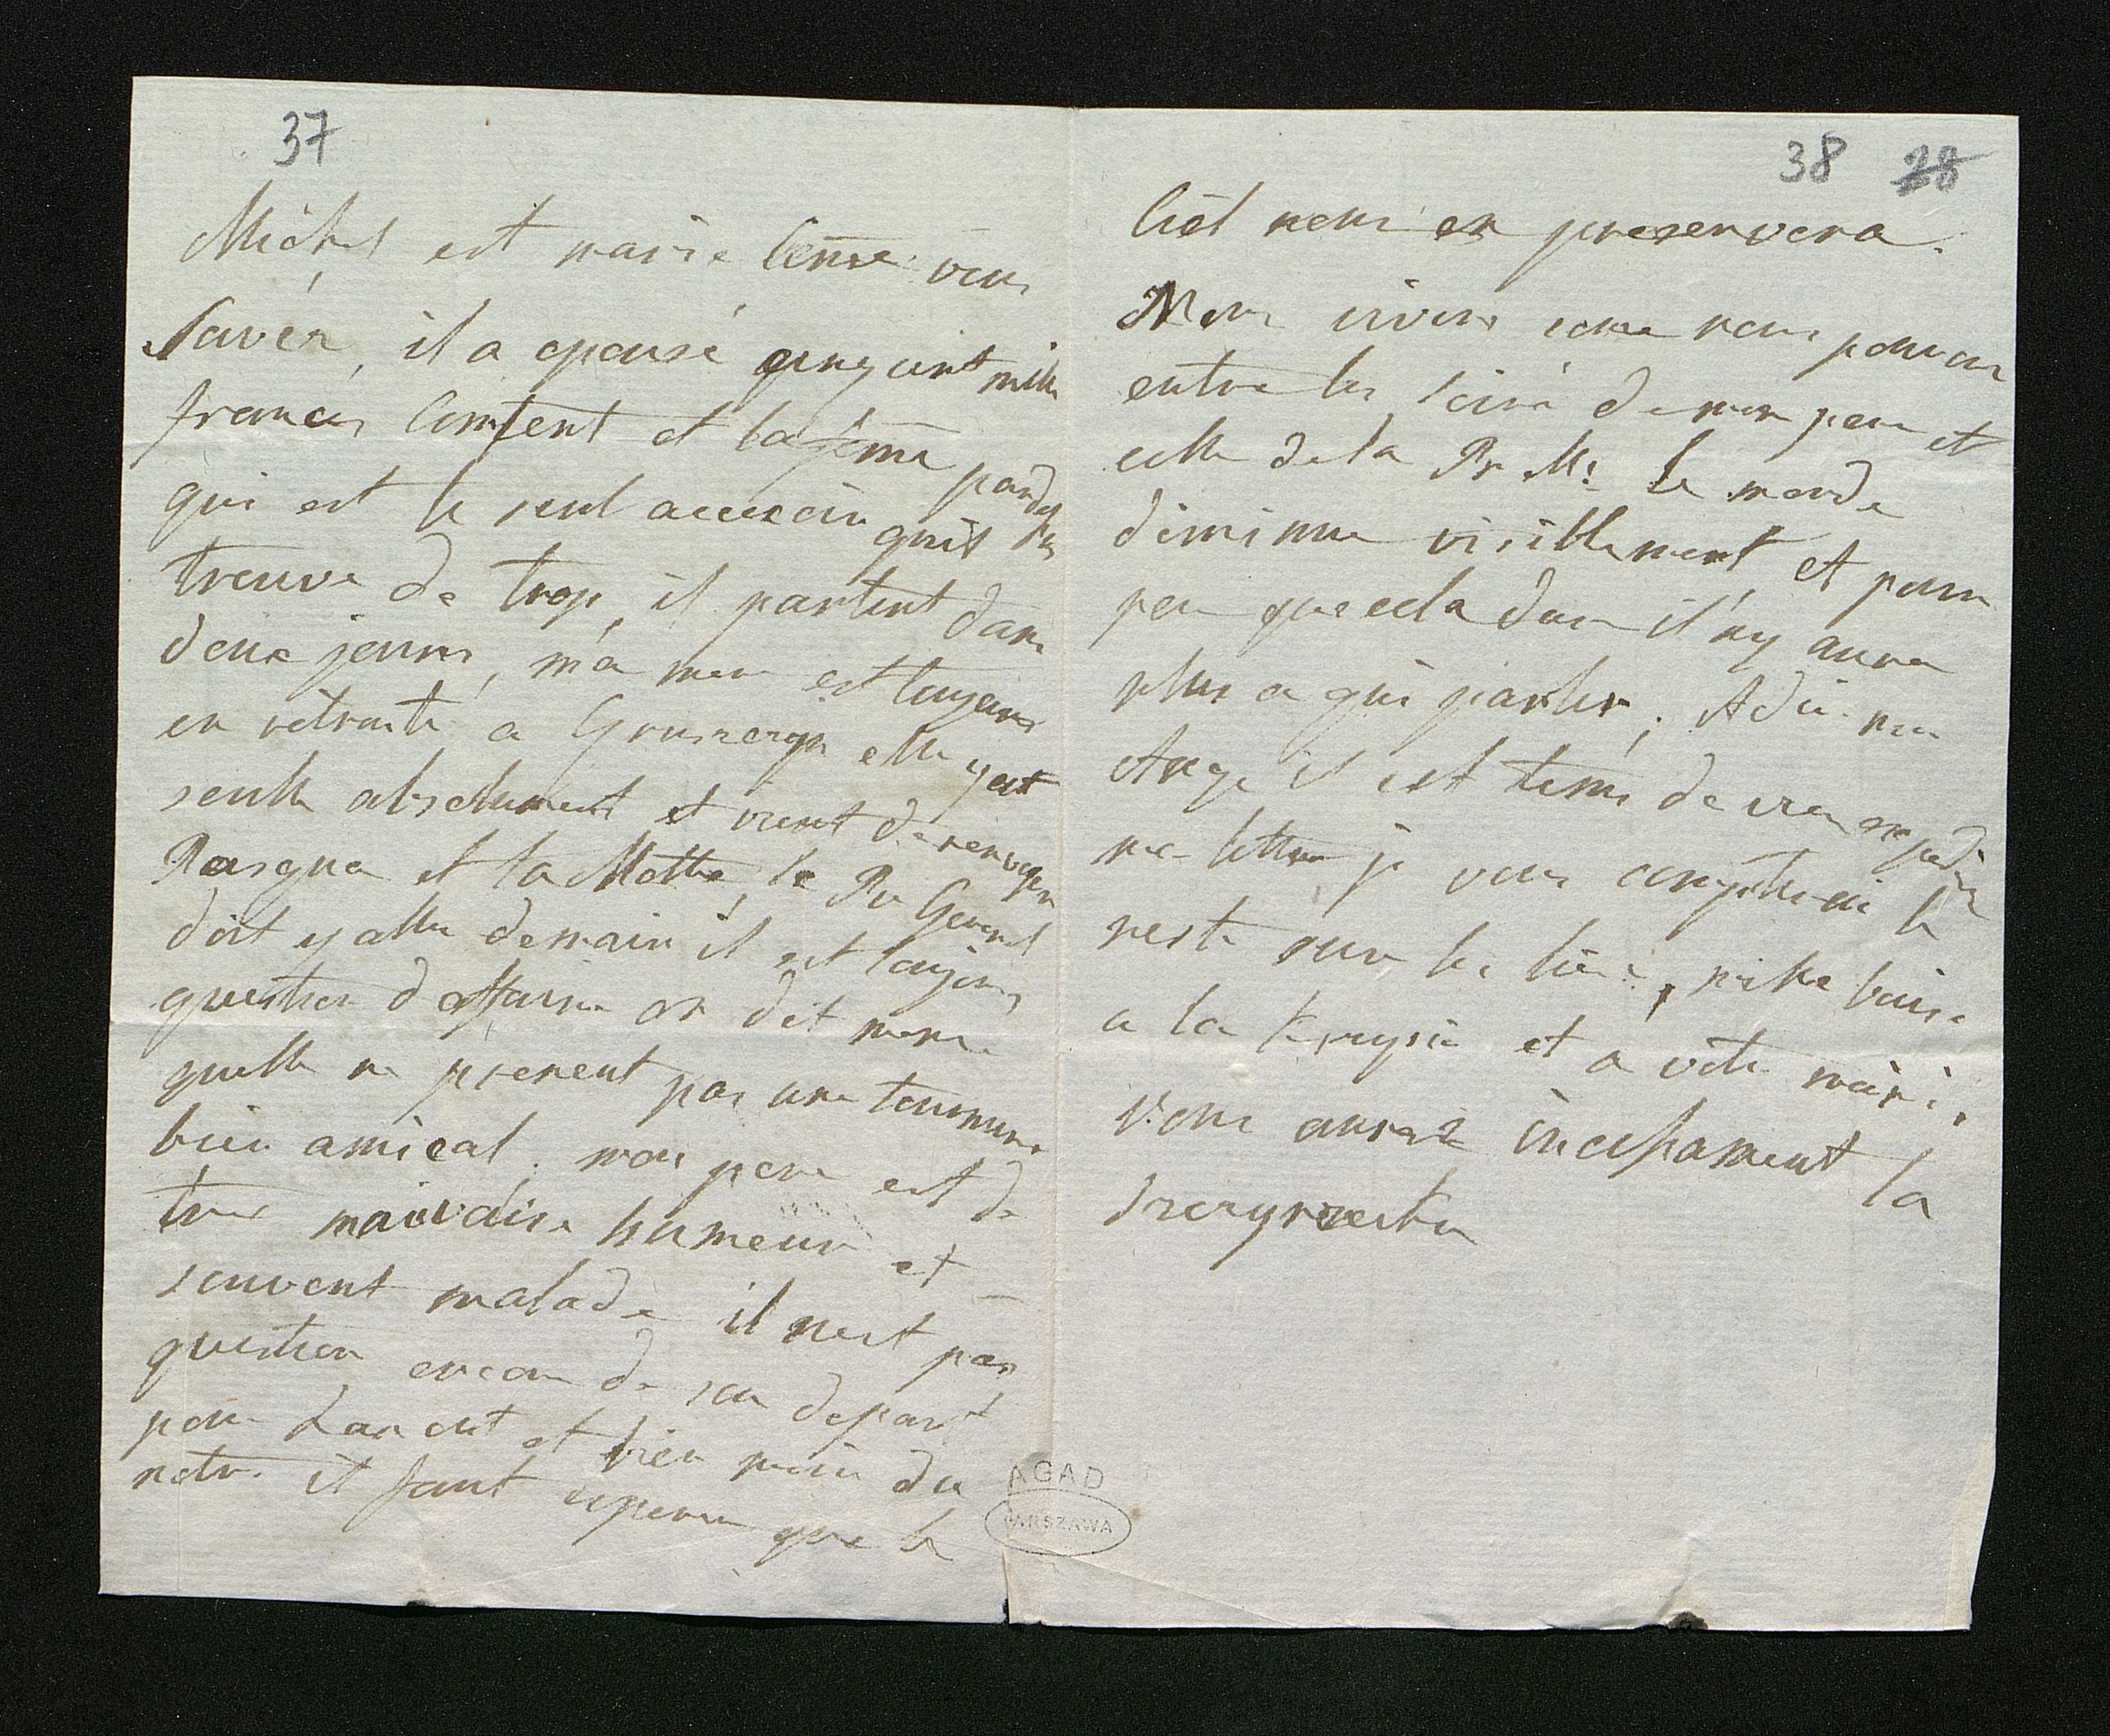 37
Michel est marié come vous
savéz, il a epousé cinq cint mille
francs contant et la feme pardessus
qui est le seul accesoire quil
trouve de trop, il partent dans
deux jours, ma mere est toujours
en retraite a elle y est
seulle absolument et vient de renvoyer
et la Motte, le Pr General
doit y aller demain il est toujours
question daffaire on dit meme
quelle ne prenent pas une tournure
bien amical, mon pere est de
tres mauvaise humeur et
souvent malade il nest pas
question encore de son depart
pour et bien moin du
notre il faut esperer que le
38 28
Ciel nous en preservera.
Nous vivons come nous pouvons
entre les soiré de mon pere et
celle de la Pr M: le monde
diminue visiblement et pour
peu que cela dure il ny aura
plus a qui parler, Adieu mon
Ange il est tems de vous expedier
ma lettre je vous completerai le
reste sur les lieux, mille baisé
a la et a votre mari.
Vous aurez incesament la
AGAD
WARSZAWA